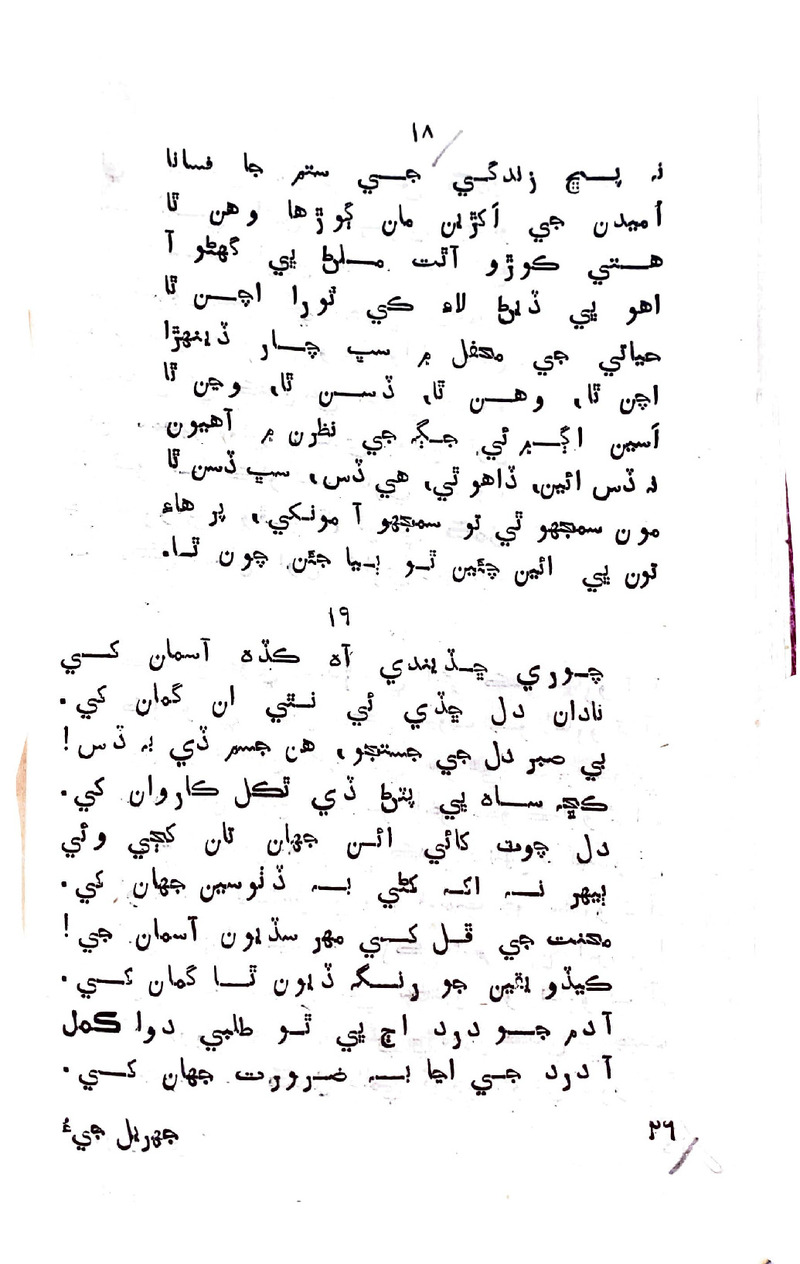 ١٨
نہ پڇ زندگي جي ستم جا فسانا
اُميدن جي اکڙين مان ڳوڙها وهن ٿا
هستي ڪوڙو آٿت ملڻ ڀي گهڻو آ
اهو ڀي ڏيڻ لاءِ ڪي ٿورا اچن ٿا
حياتي جي محفل ۾ سڀ چار ڏينهڙا
اچن ٿا، وهن ٿا، ڏسن ٿا، وڃن ٿا
اَسين اڳ ۾ ئي جڳ جي نظرن ۾ آهيون
نہ ڏس ائين، ڏاهو ٿي، هي ڏس، سڀ ڏسن ٿا
مون سمجهو ٿي تو سمجهو آ مونکي، پر هاءِ
تون ڀي ائين چئين ٿو ٻيا جئن چون ٿا.
١٩
چوري ڇڏيندي آه ڪڏه آسمان کي
نادان دل ڇڏي ئي نٿي ان گمان کي.
بي صبر دل جي جستجو، هن جسم ڏي بہ ڏس!
ڪڇہ ساه ڀي پٽڻ ڏي ٿڪل ڪاروان کي.
دل چوٽ کائي ائن جهان تان کڄي وئي
ٻيهر نہ اک کڻي بہ ڏٺوسين جهان کي.
محنت جي ڦل کي مهر سڏيون آسمان جي!
ڪيڏو يقين جو رنگ ڏيون ٿا گمان کي.
آدم جو درد اڄ ڀي ٿو طلبي دوا ڪمل
آ درد جي اڃا بہ ضرورت جهان کي.
٢٦
جهريل جيءُ